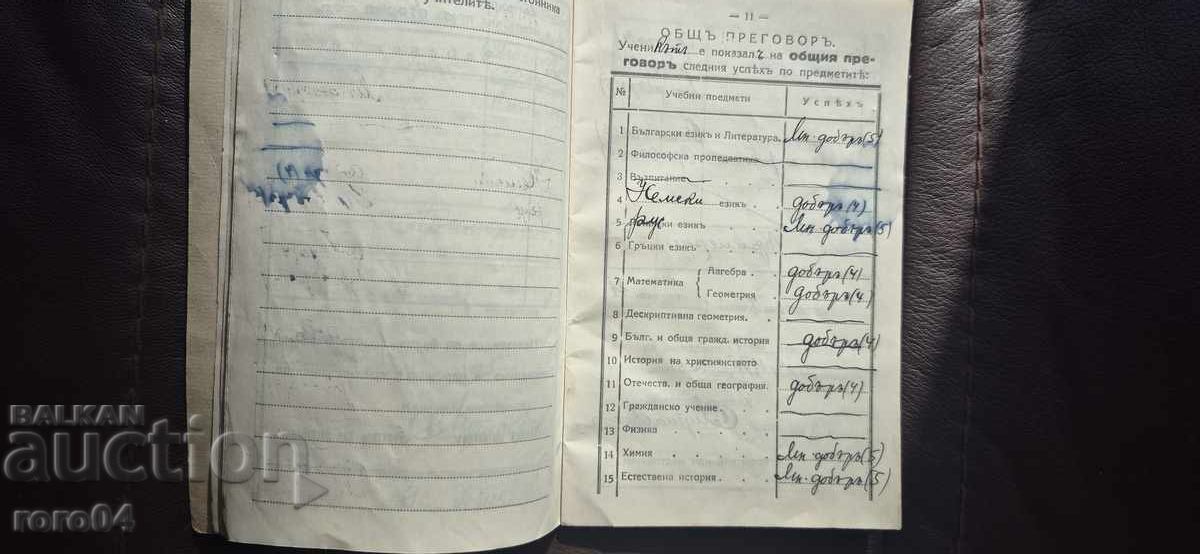 ойника
учителитѣ.
— 11 —
ОБЩЪ ПРЕГОВОРЪ.
Учени е показалъ на общия пре-
говоръ следния успѣхъ по предметитѣ:
№ Учебни предмети Успѣхъ
1 Български езикъ и Литература. Мн. добъръ (5)
2 Философска пропедевтика
3 Възпитание
4 Немски езикъ добъръ (4)
5 рус езикъ Мн. добъръ (5)
6 Гръцки езикъ
7 Математика { Алгебра добъръ (4)
Геометрия добъръ (4)
8 Дескриптивна геометрия.
9 Бълг. и обща гражд. история добъръ (4)
10 История на християнството
11 Отечеств. и обща география. добъръ (4)
12 Гражданско учение
13 Физика
14 Химия Мн. добъръ (5)
15 Естествена история Мн. добъръ (5)
BALKAN
auction
roro04